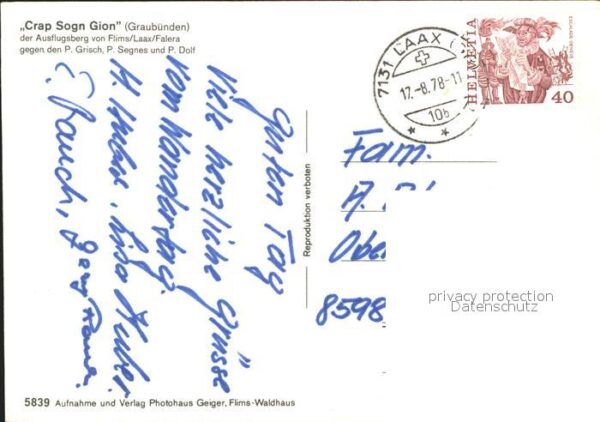 „Crap Sogn Gion" (Graubünden)
der Ausflugsberg von Flims/Laax/Falera
gegen den P. Grisch, P. Segnes und P. Dolf
guten Tag
Viele herzliche Grüsse
vom Wandertag.
H. Huber, Lisa Huber
E. Rauch,
Reproduktion verboten
7131 LAAX
17.-8.78-11
10b
HELVETIA
40
Fam.
A.
Obe
8598
privacy protection
Datenschutz
5839 Aufnahme und Verlag Photohaus Geiger, Flims-Waldhaus